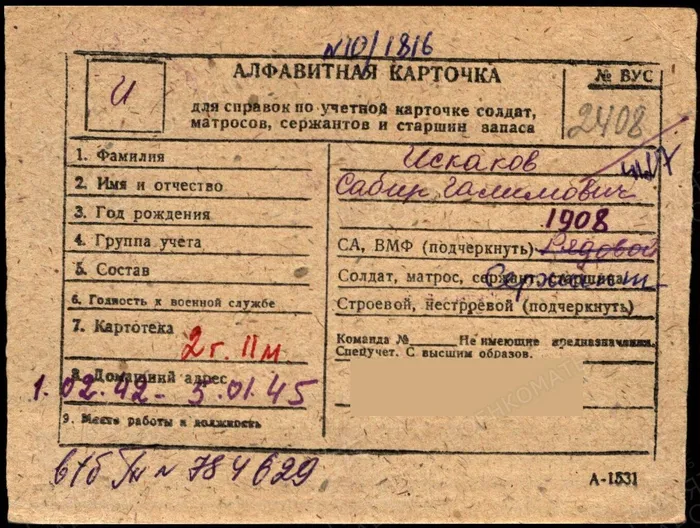 N10/1816
И
АЛФАВИТНАЯ КАРТОЧКА
для справок по учетной карточке солдат,
матросов, сержантов и старшин запаса
№ ВУС
2408
1. Фамилия
Искаков
2. Имя и отчество
Сабир Галимович
3. Год рождения
1908
4. Группа учета
СА, ВМФ (подчеркнуть) Рядовой
5. Состав
Солдат, матрос, сержант, старшина
Сержант
6. Годность к военной службе
Строевой, нестроевой (подчеркнуть)
7. Картотека
2г. IIм
Команда №____ Не имеющие предназначения.
Спецучет. С высшим образов.
8. Домашний адрес
1.02.42 - 5.01.45
9. Место работы и должность
в/б № 784629
А-1531